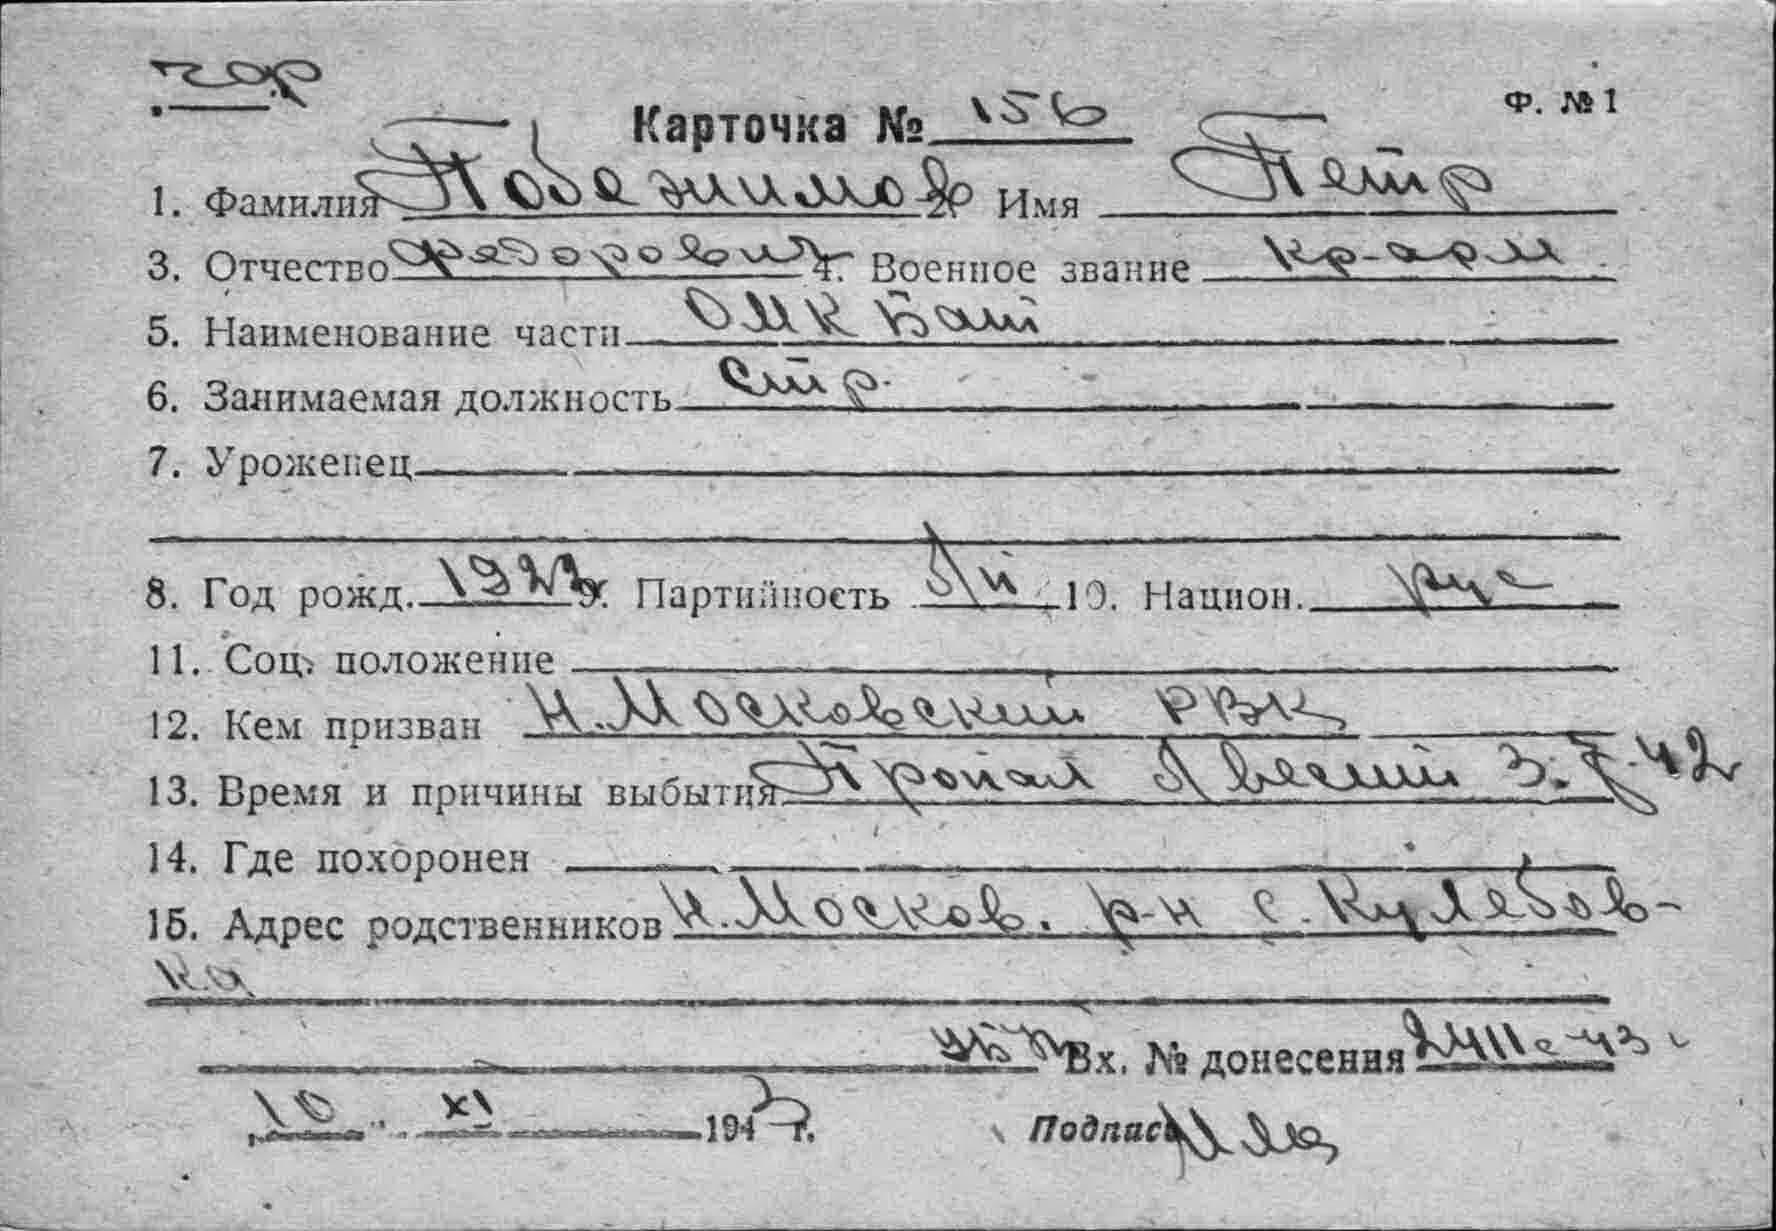 Ф. №1
Карточка № 156
1. Фамилия Побежимов 2. Имя Петр
3. Отчество Федорович 4. Военное звание кр-арм
5. Наименование части ОМК Бат
6. Занимаемая должность стр.
7. Уроженец
8. Год рожд. 1922 9. Партийность 10. Национ. рус
11. Соц. положение
12. Кем призван Н.Московский РВК
13. Время и причины выбытия Пропал вести 3. 42
14. Где похоронен
15. Адрес родственников Н.Москов. р-н с. Кулебов-
ка
Вх. № донесения 2411с-43
10 XI 1943 г. Подпись